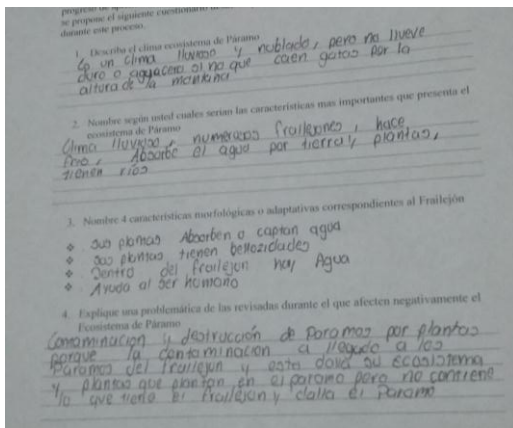 progreso de
se propone el siguiente cuestionario
durante este proceso.
1. Describa el clima ecosistema de Páramo
Es un clima lluvioso y nublado, pero no llueve
duro o aguacero si no que caen gotas por la
altura de la montaña
2. Nombre según usted cuales serian las características mas importantes que presenta el
ecosistema de Páramo
Clima lluvioso, numerosos frailejones, hace
frio, Absorbe el agua por tierra y plantas,
tienen ríos
3. Nombre 4 características morfológicas o adaptativas correspondientes al Frailejón
❖ sus plantas Absorben o captan agua
❖ sus plantas tienen bellozidades
❖ Dentro del frailejon hay Agua
❖ Ayuda al ser humano
4. Explique una problemática de las revisadas durante el que afecten negativamente el
Ecosistema de Páramo
Contaminación y destrucción de Paramos por plantas
porque la contaminacion a llegado a los
Paramos del frailejon y esto daña su Ecosistema
y plantas que plantan en el paramo pero no contiene
lo que tiene el frailejon y daña el Paramo